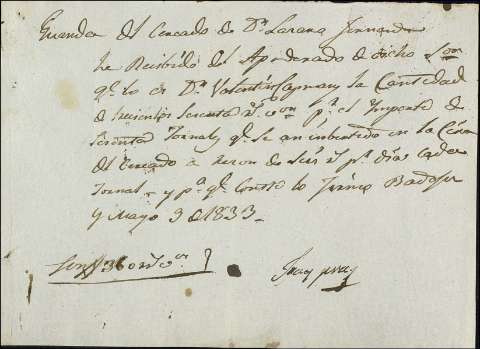 Guarda del Cercado de Dn. Lazaro Fernandez
he Recibido del Apoderado de dicho Sor.
qe. lo es Dn. Valentin la Cantidad
de trecientos sesenta Rs. von. pr. el Importe de
sesenta Jornals. qe. se an inbertido en la
del Cercado a Razon de seis Rs. pr. dias cada
Jornal - y pa. qe. Conste lo firmo Badajoz
y Mayo 3 de 1833.
Son 360 rs. von.